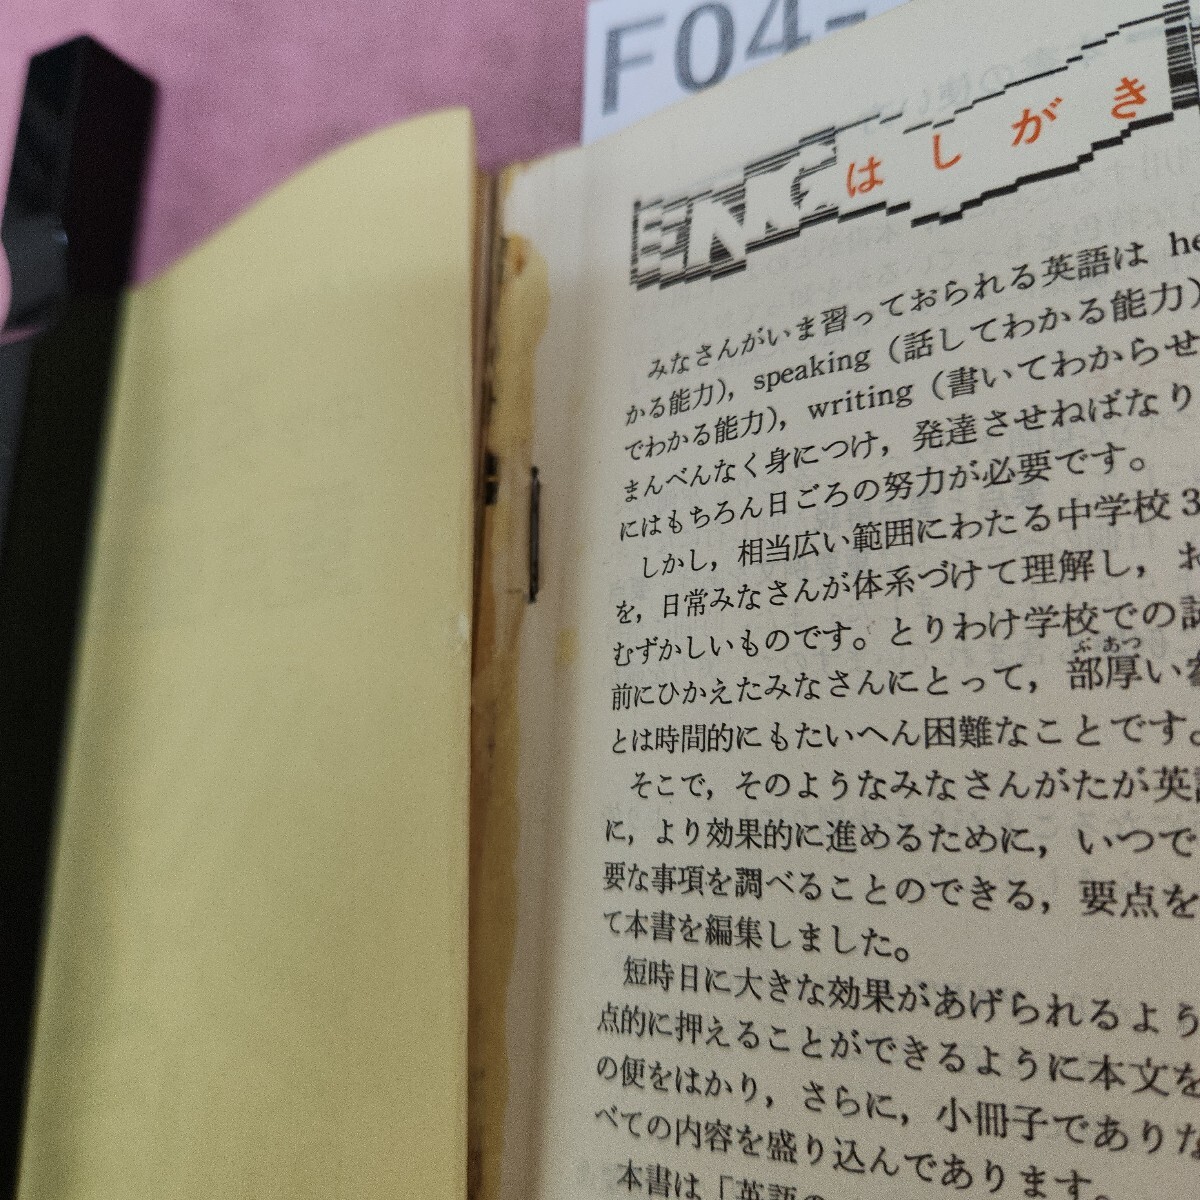 F04-
はしがき
みなさんがいま習っておられる英語は he
かる能力), speaking (話してわかる能力)
でわかる能力), writing (書いてわからせ
まんべんなく身につけ, 発達させねばなり
にはもちろん日ごろの努力が必要です。
しかし, 相当広い範囲にわたる中学校3
を, 日常みなさんが体系づけて理解し, お
むずかしいものです。とりわけ学校での試
ぶ あつ
前にひかえたみなさんにとって, 部厚い
とは時間的にもたいへん困難なことです。
そこで, そのようなみなさんがたが英語
に, より効果的に進めるために, いつで
要な事項を調べることのできる, 要点を
て本書を編集しました。
短時日に大きな効果があげられるよう
点的に押えることができるように本文を
の便をはかり, さらに, 小冊子でありな
べての内容を盛り込んであります
本書は「英語の